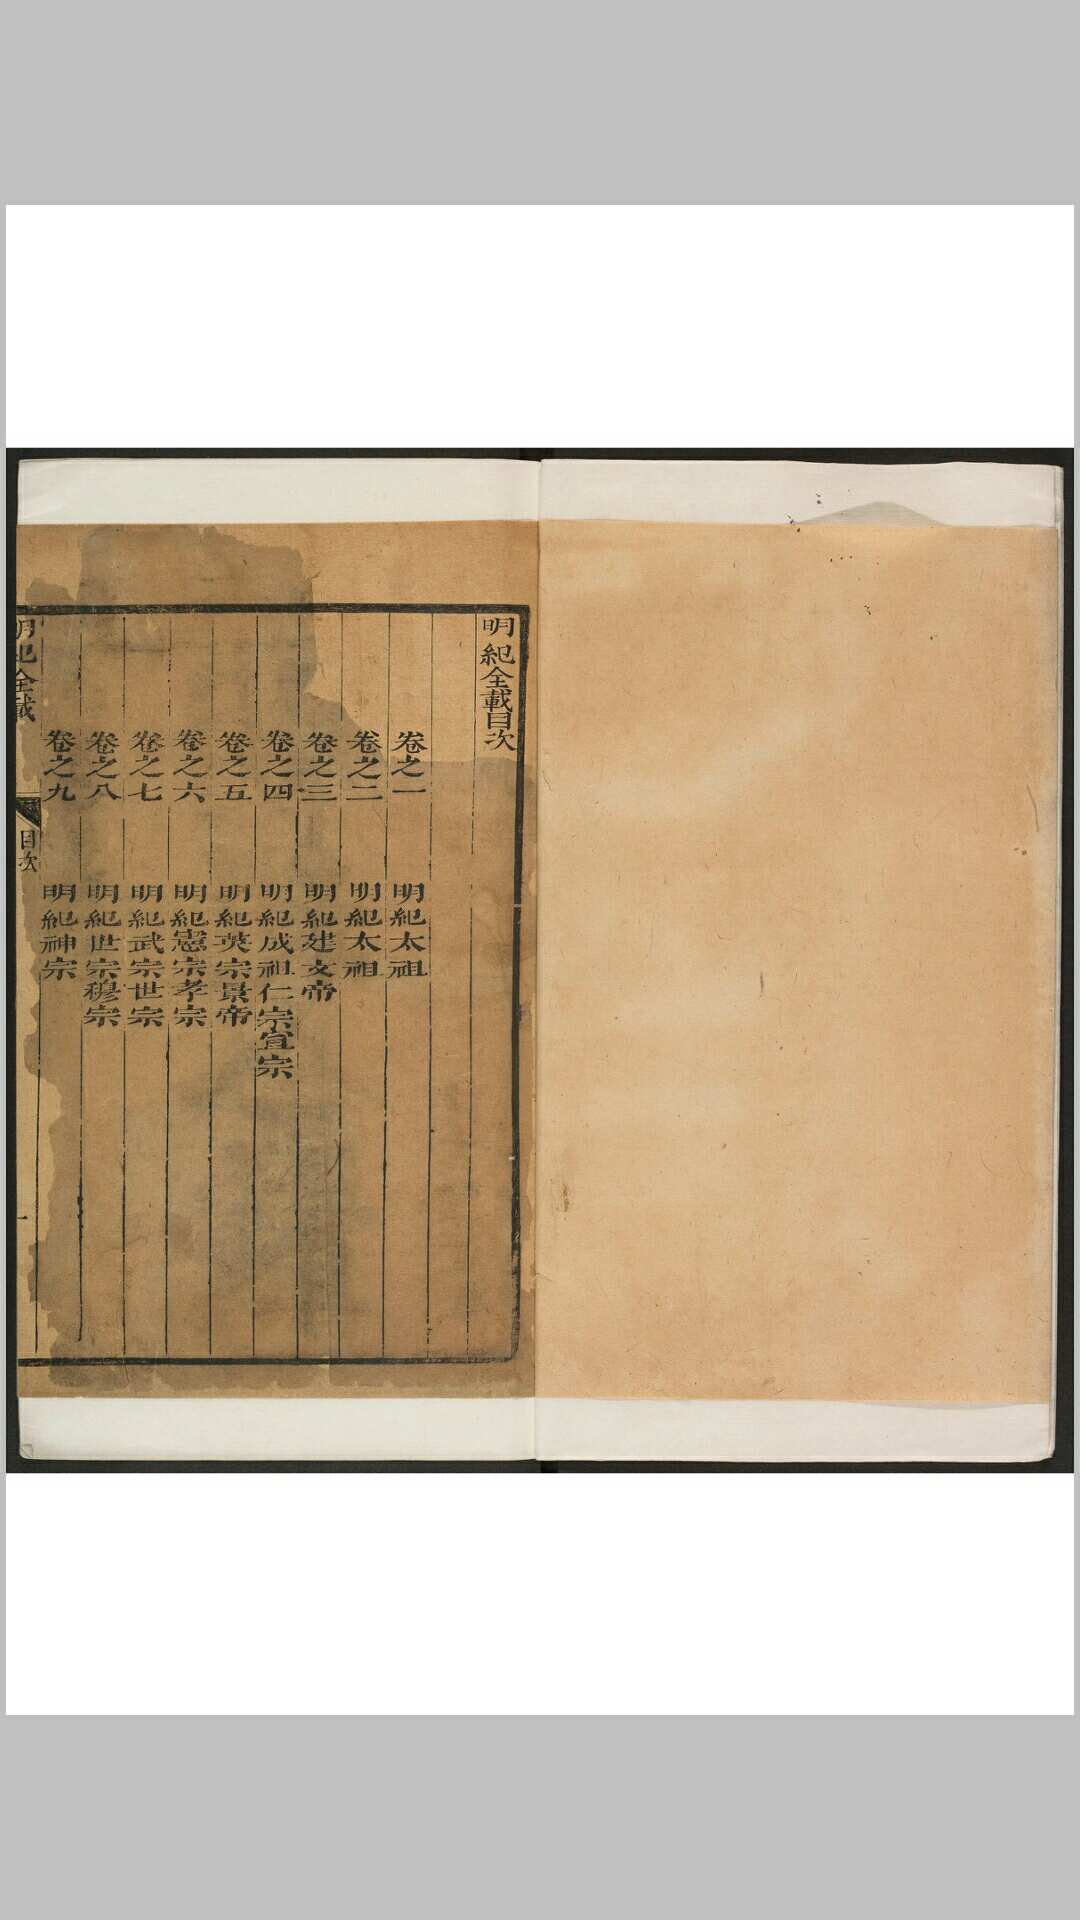 明紀全載目次
卷之一　明紀太祖
卷之二　明紀太祖
卷之三　明紀建文帝
卷之四　明紀成祖仁宗宣宗
卷之五　明紀英宗景帝
卷之六　明紀憲宗孝宗
卷之七　明紀武宗世宗
卷之八　明紀世宗穆宗
卷之九　明紀神宗
明紀全載　目次　一